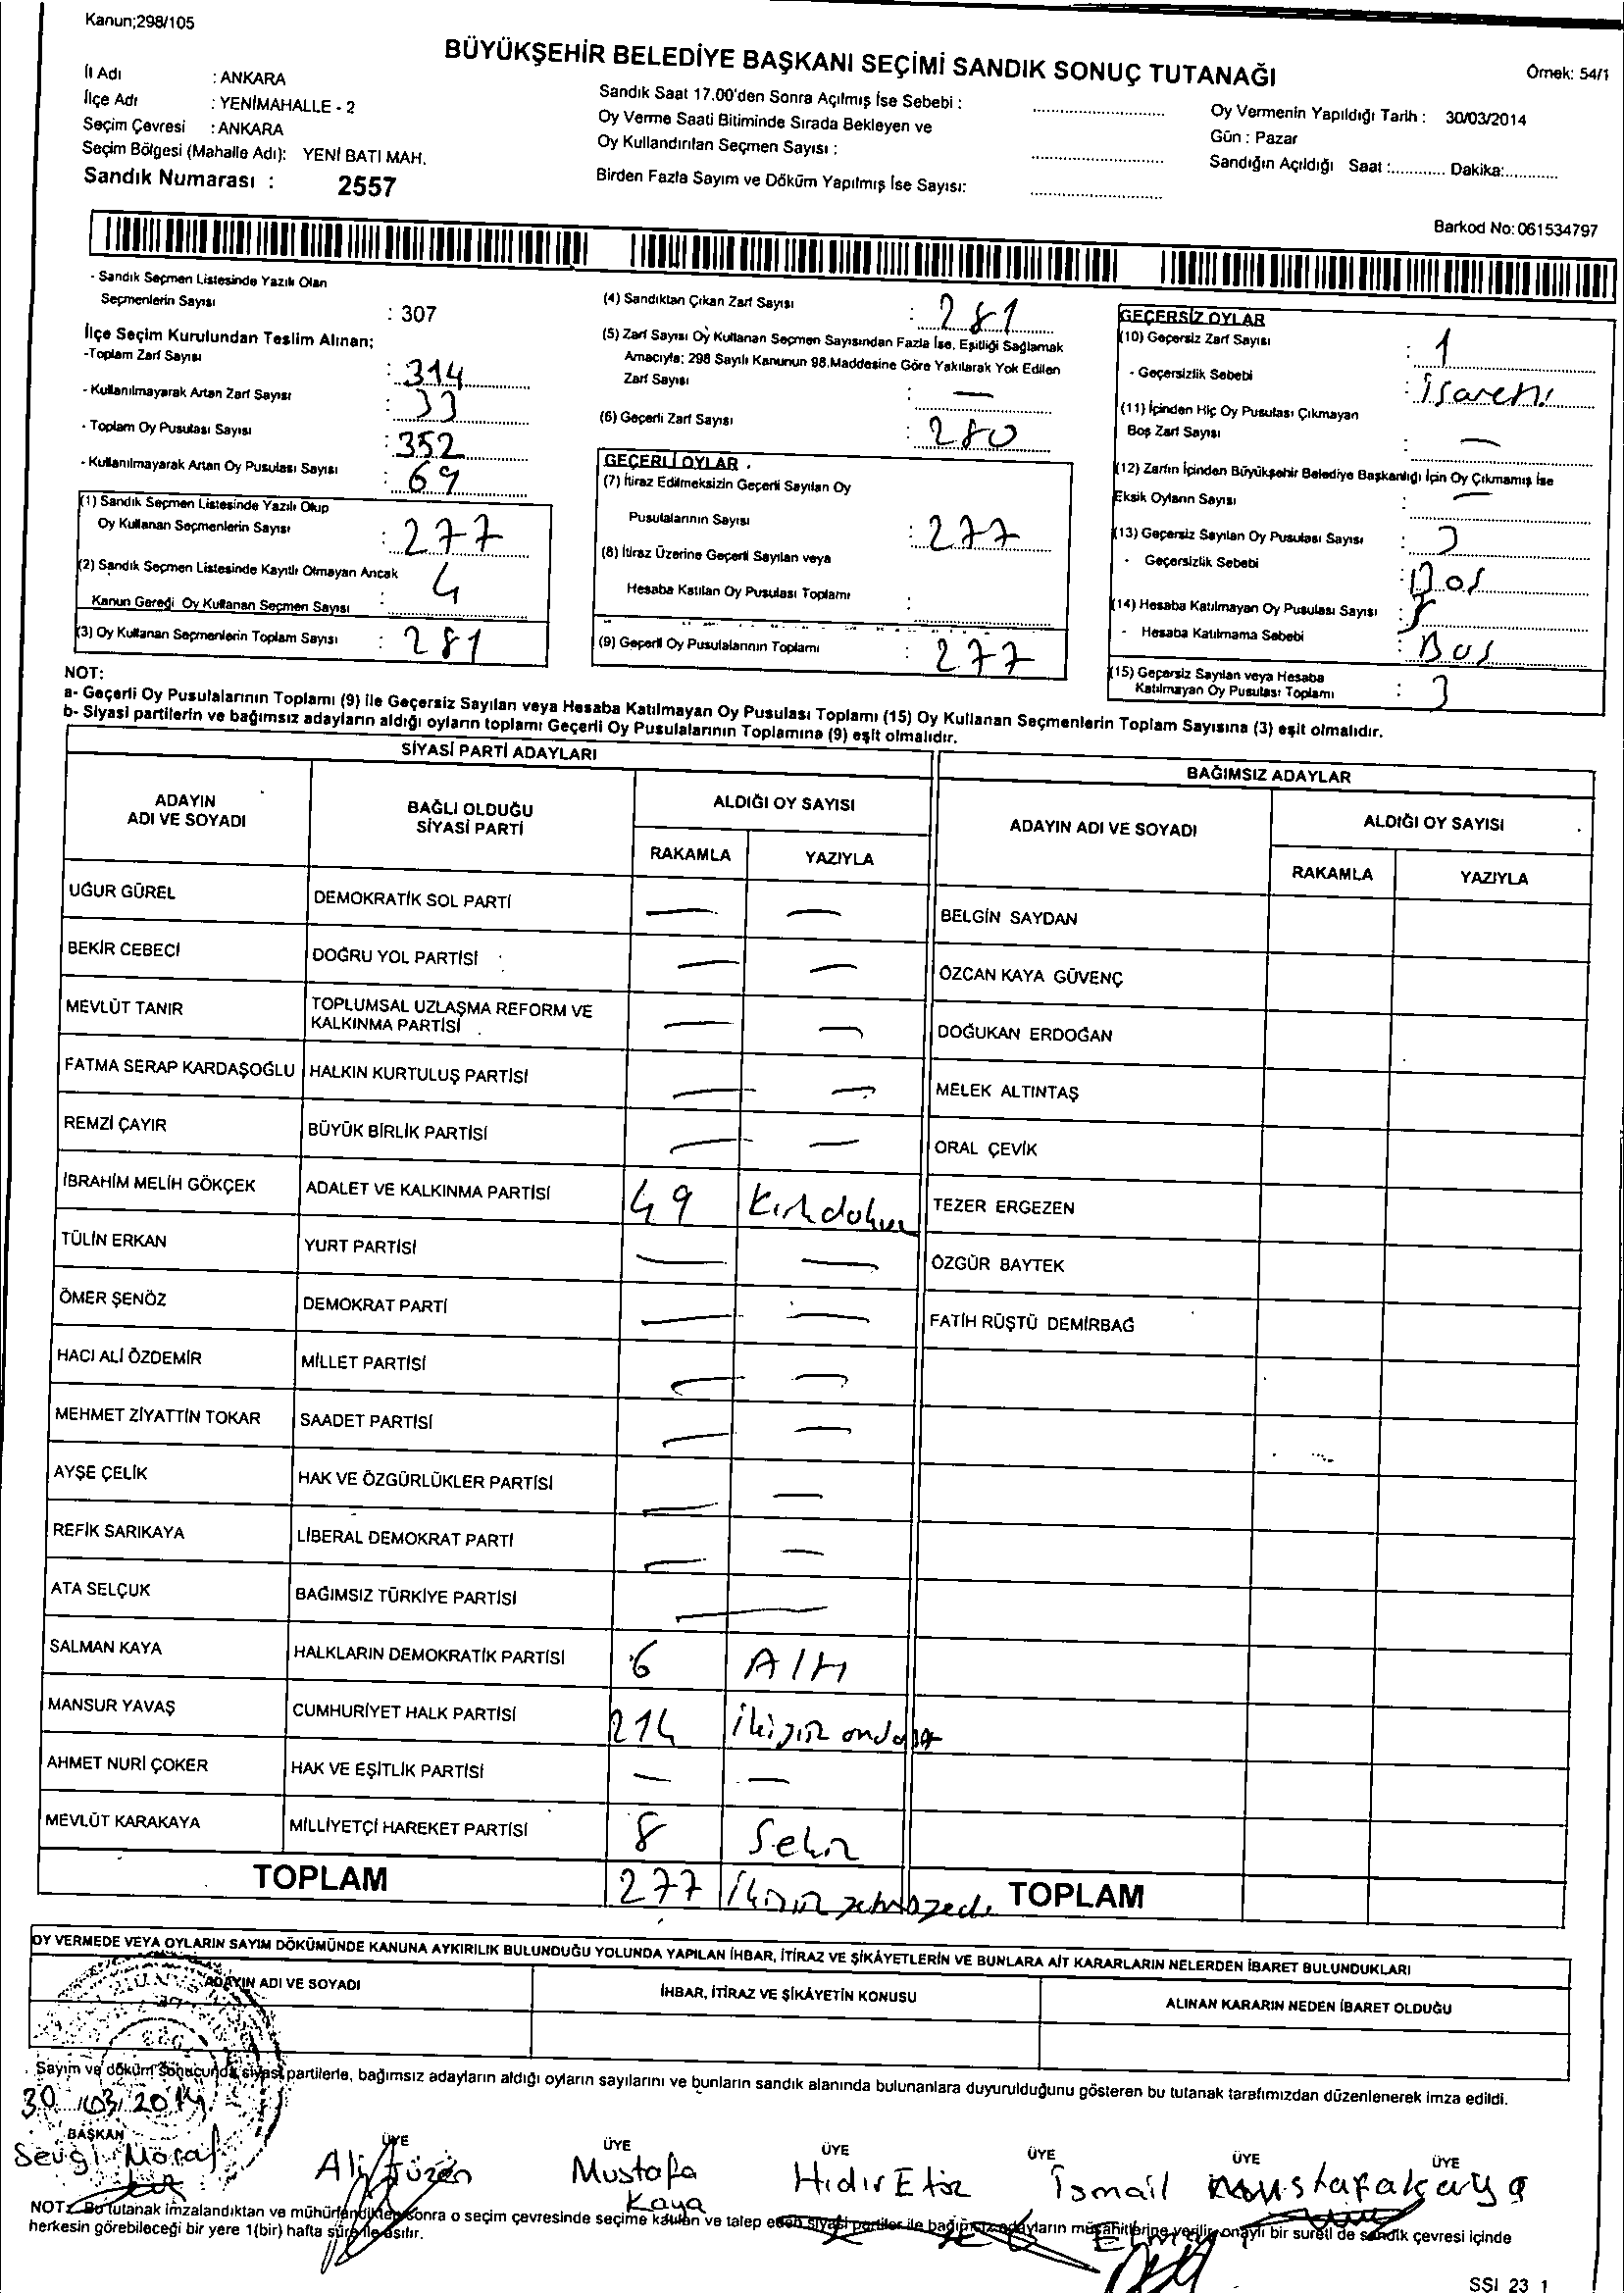 Kanun;298/105
BÜYÜKŞEHİR BELEDİYE BAŞKANI SEÇİMİ SANDIK SONUÇ TUTANAĞI
Örnek: 54/1
İl Adı : ANKARA
İlçe Adı : YENİMAHALLE - 2
Seçim Çevresi : ANKARA
Seçim Bölgesi (Mahalle Adı): YENİ BATI MAH.
Sandık Numarası : 2557
Sandık Saat 17.00'den Sonra Açılmış İse Sebebi :
Oy Verme Saati Bitiminde Sırada Bekleyen ve
Oy Kullandırılan Seçmen Sayısı :
Birden Fazla Sayım ve Döküm Yapılmış İse Sayısı:
Oy Vermenin Yapıldığı Tarih : 30/03/2014
Gün : Pazar
Sandığın Açıldığı Saat :............ Dakika:...........
Barkod No: 061534797
- Sandık Seçmen Listesinde Yazılı Olan
Seçmenlerin Sayısı : 307
İlçe Seçim Kurulundan Teslim Alınan;
-Toplam Zarf Sayısı : 314
- Kullanılmayarak Artan Zarf Sayısı : 33
- Toplam Oy Pusulası Sayısı : 352
- Kullanılmayarak Artan Oy Pusulası Sayısı : 69
(1) Sandık Seçmen Listesinde Yazılı Olup
Oy Kullanan Seçmenlerin Sayısı : 277
(2) Sandık Seçmen Listesinde Kayıtlı Olmayan Ancak
Kanun Gereği Oy Kullanan Seçmen Sayısı : 4
(3) Oy Kullanan Seçmenlerin Toplam Sayısı : 281
(4) Sandıktan Çıkan Zarf Sayısı : 281
(5) Zarf Sayısı Oy Kullanan Seçmen Sayısından Fazla İse, Eşitliği Sağlamak
Amacıyla; 298 Sayılı Kanunun 98.Maddesine Göre Yakılarak Yok Edilen
Zarf Sayısı : —
(6) Geçerli Zarf Sayısı : 280
GEÇERLİ OYLAR
(7) İtiraz Edilmeksizin Geçerli Sayılan Oy
Pusulalarının Sayısı : 277
(8) İtiraz Üzerine Geçerli Sayılan veya
Hesaba Katılan Oy Pusulası Toplamı :
(9) Geçerli Oy Pusulalarının Toplamı : 277
GEÇERSİZ OYLAR
(10) Geçersiz Zarf Sayısı : 1
- Geçersizlik Sebebi : İsaretli
(11) İçinden Hiç Oy Pusulası Çıkmayan
Boş Zarf Sayısı : —
(12) Zarfın İçinden Büyükşehir Belediye Başkanlığı İçin Oy Çıkmamış İse
Eksik Oyların Sayısı : —
(13) Geçersiz Sayılan Oy Pusulası Sayısı : 3
- Geçersizlik Sebebi : Bos
(14) Hesaba Katılmayan Oy Pusulası Sayısı :
- Hesaba Katılmama Sebebi : Bos
(15) Geçersiz Sayılan veya Hesaba
Katılmayan Oy Pusulası Toplamı : 3
NOT:
a- Geçerli Oy Pusulalarının Toplamı (9) ile Geçersiz Sayılan veya Hesaba Katılmayan Oy Pusulası Toplamı (15) Oy Kullanan Seçmenlerin Toplam Sayısına (3) eşit olmalıdır.
b- Siyasi partilerin ve bağımsız adayların aldığı oyların toplamı Geçerli Oy Pusulalarının Toplamına (9) eşit olmalıdır.
SİYASİ PARTİ ADAYLARI
ADAYIN ADI VE SOYADI BAĞLI OLDUĞU SİYASİ PARTİ ALDIĞI OY SAYISI RAKAMLA YAZIYLA
UĞUR GÜREL DEMOKRATİK SOL PARTİ — —
BEKİR CEBECİ DOĞRU YOL PARTİSİ — —
MEVLÜT TANIR TOPLUMSAL UZLAŞMA REFORM VE KALKINMA PARTİSİ — —
FATMA SERAP KARDAŞOĞLU HALKIN KURTULUŞ PARTİSİ — —
REMZİ ÇAYIR BÜYÜK BİRLİK PARTİSİ — —
İBRAHİM MELİH GÖKÇEK ADALET VE KALKINMA PARTİSİ 49 Kırkdokuz
TÜLİN ERKAN YURT PARTİSİ — —
ÖMER ŞENÖZ DEMOKRAT PARTİ — —
HACI ALİ ÖZDEMİR MİLLET PARTİSİ — —
MEHMET ZİYATTİN TOKAR SAADET PARTİSİ — —
AYŞE ÇELİK HAK VE ÖZGÜRLÜKLER PARTİSİ — —
REFİK SARIKAYA LİBERAL DEMOKRAT PARTİ — —
ATA SELÇUK BAĞIMSIZ TÜRKİYE PARTİSİ —
SALMAN KAYA HALKLARIN DEMOKRATİK PARTİSİ 6 Altı
MANSUR YAVAŞ CUMHURİYET HALK PARTİSİ 214 İkiyüz ondört
AHMET NURİ ÇOKER HAK VE EŞİTLİK PARTİSİ — —
MEVLÜT KARAKAYA MİLLİYETÇİ HAREKET PARTİSİ 8 Sekiz
TOPLAM 277 İkiyüz
BAĞIMSIZ ADAYLAR
ADAYIN ADI VE SOYADI ALDIĞI OY SAYISI RAKAMLA YAZIYLA
BELGİN SAYDAN
ÖZCAN KAYA GÜVENÇ
DOĞUKAN ERDOĞAN
MELEK ALTINTAŞ
ORAL ÇEVİK
TEZER ERGEZEN
ÖZGÜR BAYTEK
FATİH RÜŞTÜ DEMİRBAĞ
TOPLAM
OY VERMEDE VEYA OYLARIN SAYIM DÖKÜMÜNDE KANUNA AYKIRILIK BULUNDUĞU YOLUNDA YAPILAN İHBAR, İTİRAZ VE ŞİKÂYETLERİN VE BUNLARA AİT KARARLARIN NELERDEN İBARET BULUNDUKLARI
ADAYIN ADI VE SOYADI İHBAR, İTİRAZ VE ŞİKÂYETİN KONUSU ALINAN KARARIN NEDEN İBARET OLDUĞU
Sayım ve döküm sonucunda siyasi partilerle, bağımsız adayların aldığı oyların sayılarını ve bunların sandık alanında bulunanlara duyurulduğunu gösteren bu tutanak tarafımızdan düzenlenerek imza edildi.
30/03/2014
BAŞKAN ÜYE ÜYE ÜYE ÜYE ÜYE ÜYE
Sevgi Ali Düzen Mustafa Kaya Hıdır İsmail Mustafa Kaya
NOT: Bu tutanak imzalandıktan ve mühürlendikten sonra o seçim çevresinde seçime katılan ve talep eden siyasi partiler ile bağımsız adayların müşahitlerine verilir, onaylı bir sureti de sandık çevresi içinde
herkesin görebileceği bir yere 1(bir) hafta süre ile asılır.
SSI 23 1